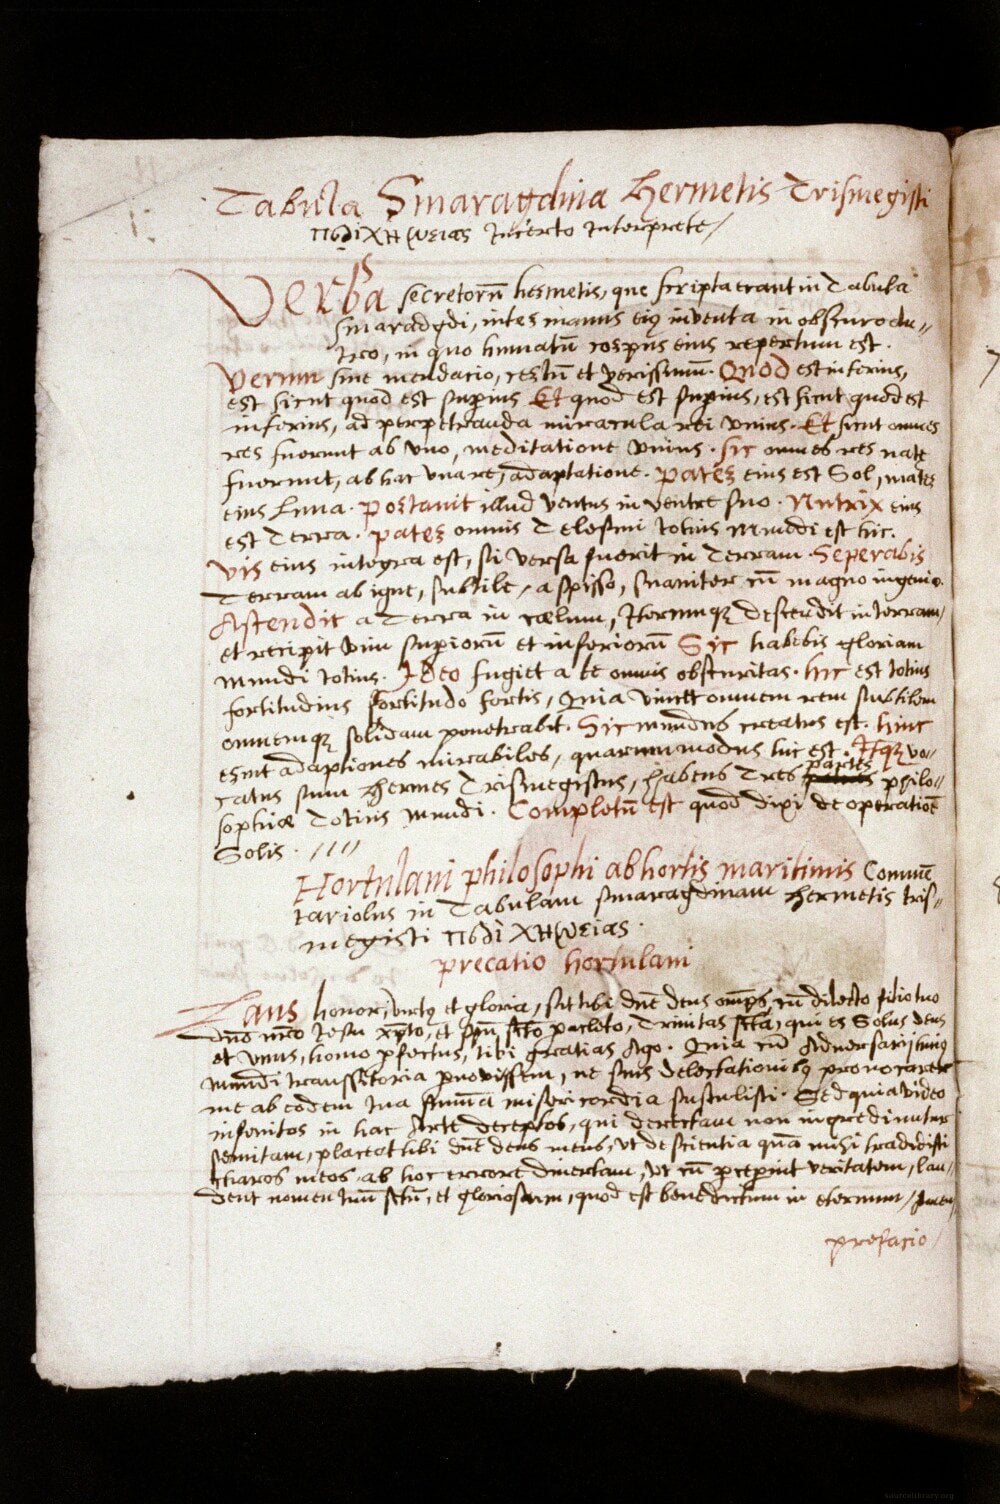 Tabula Smaragdina Hermetis Trismegisti
πϵϱὶ χημϵίας Incerto Interprete/
Verba secretorū hermetis, que scripta erant in Tabula
smaragdi, inter manus eius inventa in obscuro an„
tro, in quo humatū corpus eius repertum est.
Verum sine mendacio, certū et verissimū. Quod est inferius,
est sicut quod est supius Et quod est supius, est sicut quod est
inferius, ad perpetranda miracula rei unius. Et sicut omnes
res fuerunt ab uno, meditatione unius. sic omnes res nate
fuerunt, ab hac una re, adaptatione. Pater eius est Sol, mater
eius Luna. Portavit illud ventus in ventre suo. Nutrix eius
est Terra. Pater omnis Telesmi totius mundi est hic.
Vis eius integra est, si versa fuerit in Terram. Seperabis
Terram ab igne, subtile, a spisso, suaviter cū magno ingenio.
Ascendit a Terra in cœlum, Iterumqꝫ descendit in terram,
et recipit vim supiorū et inferiorū Sic habebis gloriam
mundi totius. Ideo fugiet a te omnis obscuritas. hic est totius
fortitudinis fortitudo fortis, Quia vincet omnem rem subtilem
omnemqꝫ solidam penetrabit. Sic mundus creatus est. hinc
erunt adaptiones mirabiles, quarum modus hic est. Itaqꝫ vo„
catus sum Hermes Trismegistus, habens Tres partes philo„
sophiæ Totius mundi. Completū est quod dixi de operatioē
Solis. ////
Hortulani philosophi ab hortis maritimis Commē
tariolus in Tabulam smaragdinam Hermetis tris„
megisti πϵϱὶ χημϵίας.
precatio hortulani
Laus, honor, virtus et gloria, sit tibi dn̄e deus omps̄, cū dilecto filio tuo
dn̄o nr̄o Jesu xp̄to, et spū sc̄to paclēto, Trinitas sc̄ta, qui es Solus deus
et unus, homo pfectus, tibi gratias Ago. Quia cū Adversari
mundi transsitoria novissem, ne suis delectationibꝫ provocarer
me ab eodem tua summa misericordia sustulisti. Sed quia video
infinitos in hac Arte deceptos, qui derectam non ingrediuntur
semitam, placeat tibi dn̄e deus meus, ut de scientia quā mihi tradidisti
charos meos ab hoc errore divertam, ut cū pcepint veritatem, lau„
dent nomen tuū sc̄tū, et gloriosum, quod est benedictum in eternum/ Amen,
prefacio/